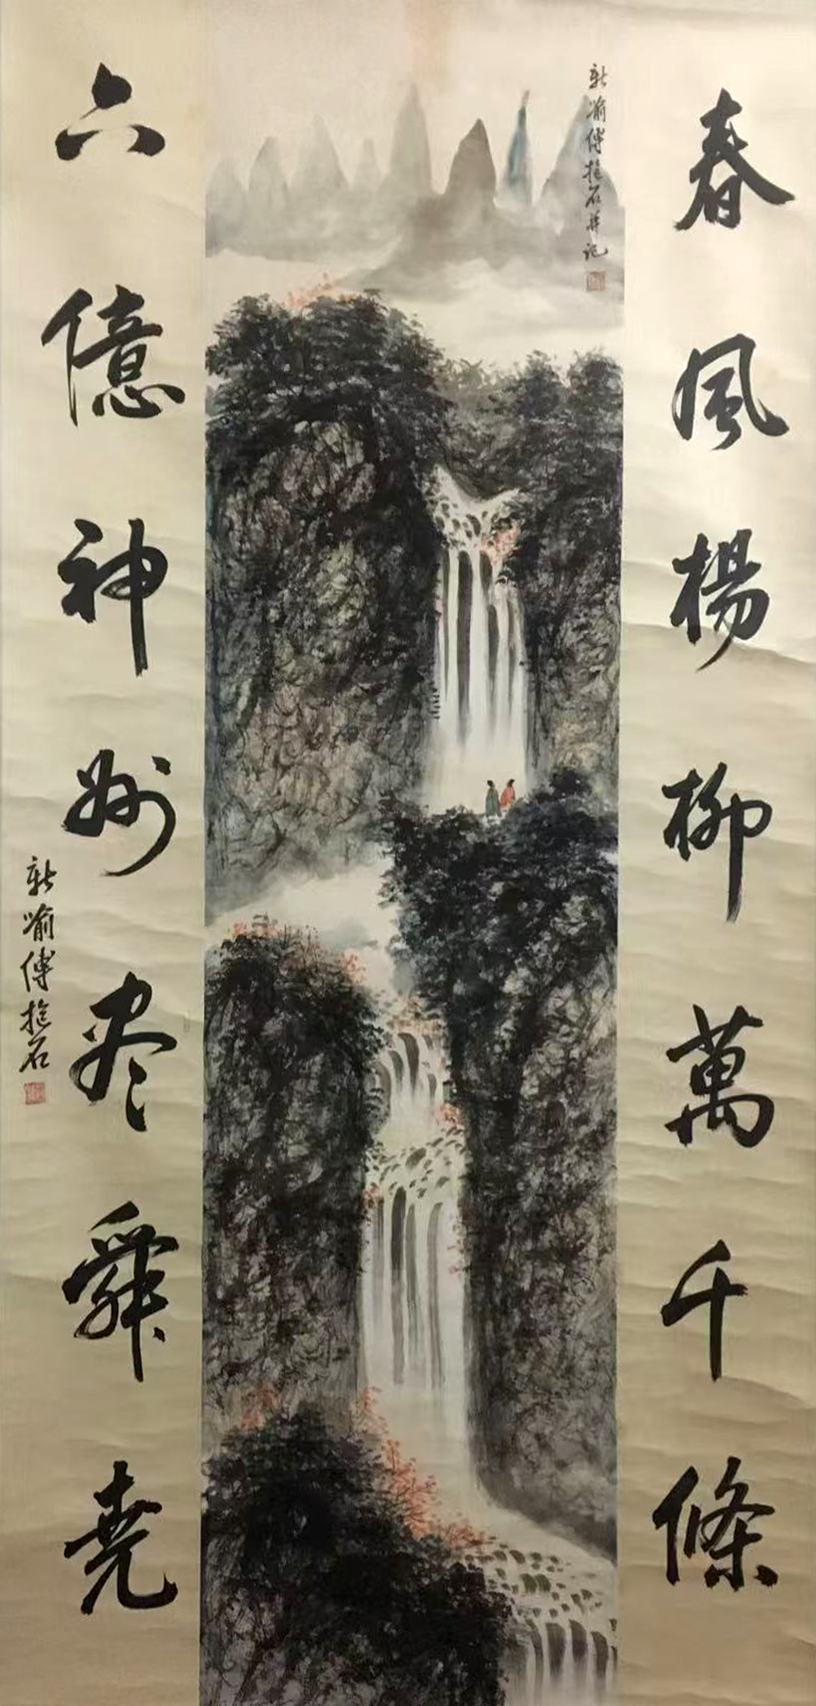 春風楊柳萬千條
新喻傅抱石并记
六億神州尽舜堯
新喻傅抱石